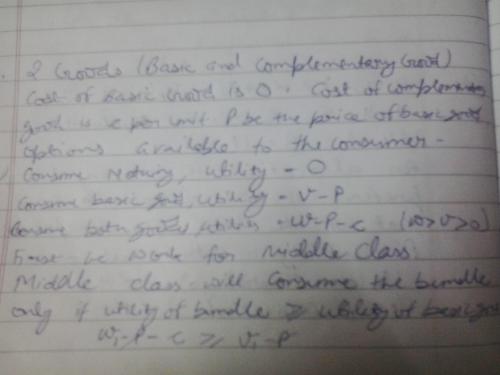 2 Goods (Basic and complementary Good)
Cost of Basic Good is 0. Cost of complementary
good is c per unit P be the price of basic good
options available to the consumer -
Consume Nothing, utility = 0
Consume basic good, utility = v - P
Consume both goods, utility = w-P-c (w>v>0)
we work for Middle Class
Middle class will consume the bundle
only if utility of bundle ≥ utility of basic good
w₁-P-c ≥ v₁-P